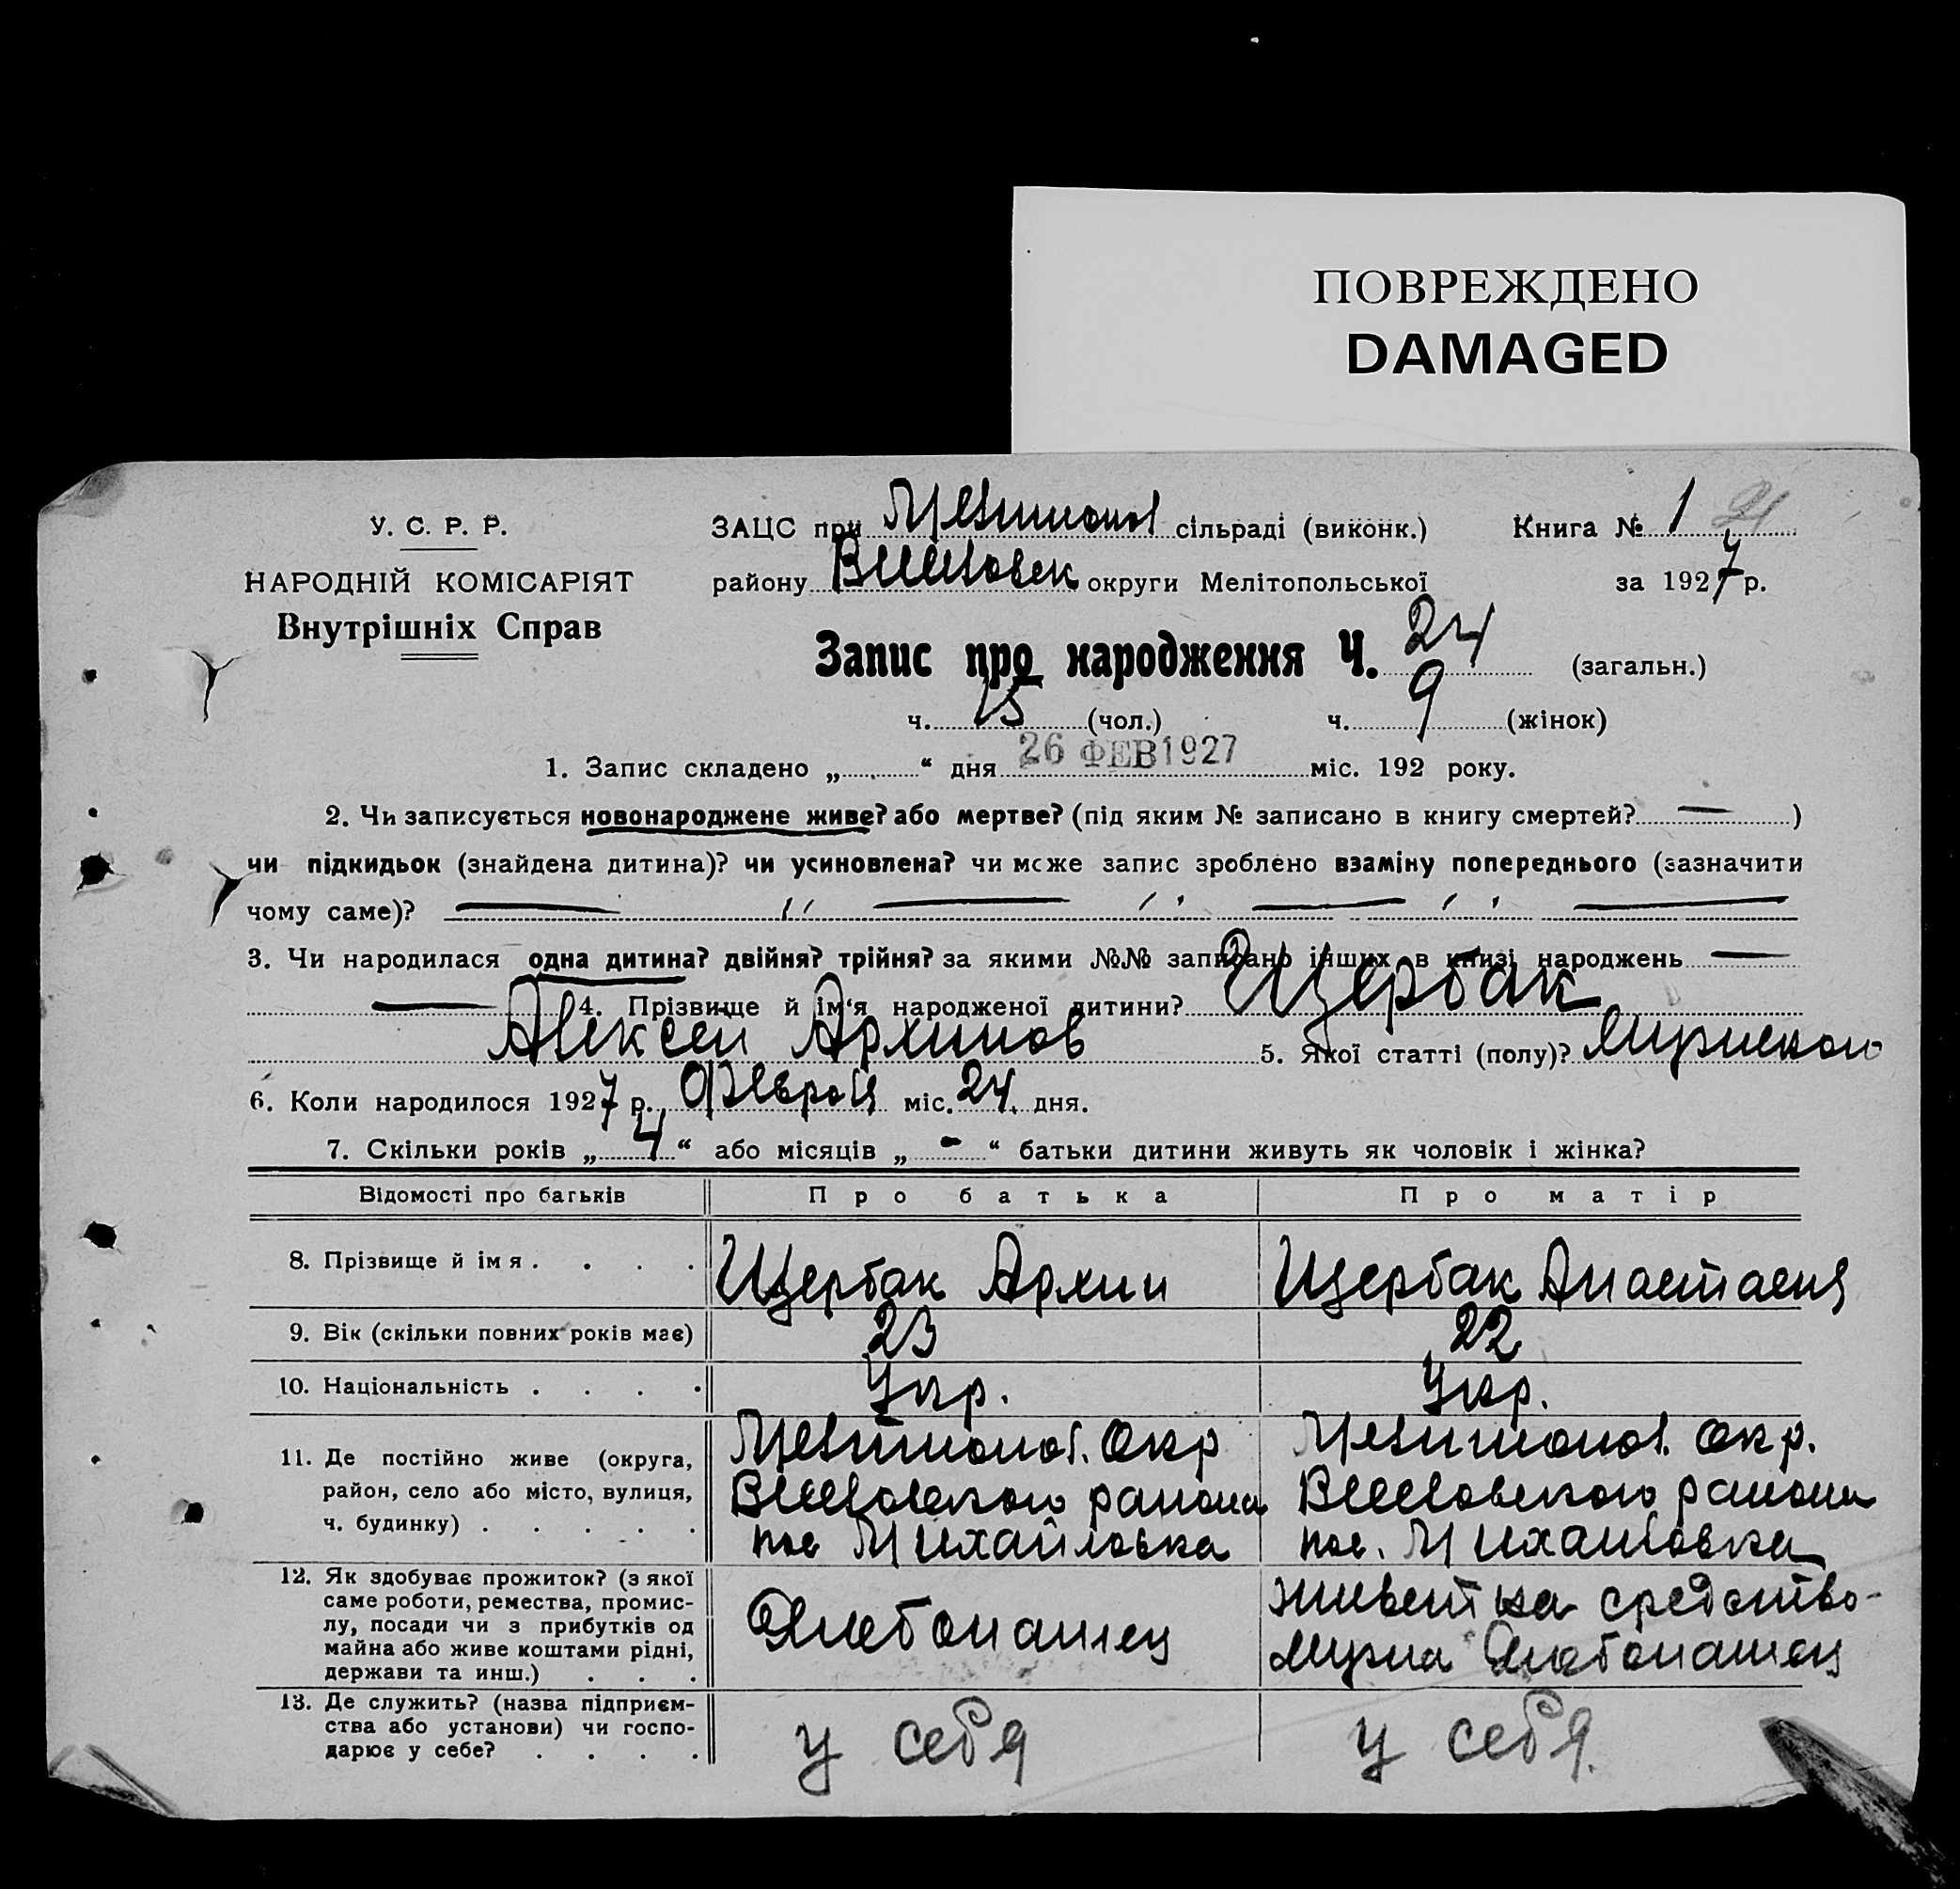 ПОВРЕЖДЕНО
DAMAGED
У. С. Р. Р.
НАРОДНІЙ КОМІСАРІЯТ
Внутрішніх Справ
ЗАЦС при сільраді (виконк.)
району округи Мелітопольської
Книга № 1 21
за 1927 р.
Запис про народження Ч. 24 (загальн.)
ч. 15 (чол.) ч. 9 (жінок)
1. Запис складено „ “ дня 26 ФЕВ 1927 міс. 192 року.
2. Чи записується новонароджене живе? або мертве? (під яким № записано в книгу смертей? — )
чи підкидьок (знайдена дитина)? чи усиновлена? чи може запис зроблено взаміну попереднього (зазначити
чому саме)? — " — " — " —
3. Чи народилася одна дитина? двійня? трійня? за якими №№ записано інших в книзі народжень —
— 4. Прізвище й ім'я народженої дитини? Щербак
Алексей Архипов 5. Якої статті (полу)? Мужского
6. Коли народилося 1927 р. Февраля міс. 24 дня.
7. Скільки років „ 4 “ або місяців „ - “ батьки дитини живуть як чоловік і жінка?
Відомості про батьків Про батька Про матір
8. Прізвище й імя . . . . Щербак Архип Щербак Анастасия
9. Вік (скільки повних років має) 23 22
10. Національність . . . . Укр. Укр.
11. Де постійно живе (округа, район, село або місто, вулиця, ч. будинку) . . . . .
Окр
района
пос Михайловка
Окр.
района
пос. Михайловка
12. Як здобуває прожиток? (з якої саме роботи, ремества, промислу, посади чи з прибутків од майна або живе коштами рідні, держави та инш.) . . .
Хлебопашец
живет на средство-
мужа Хлебопашец
13. Де служить? (назва підприємства або установи) чи господарює у себе? . . . .
у себя
у себя.